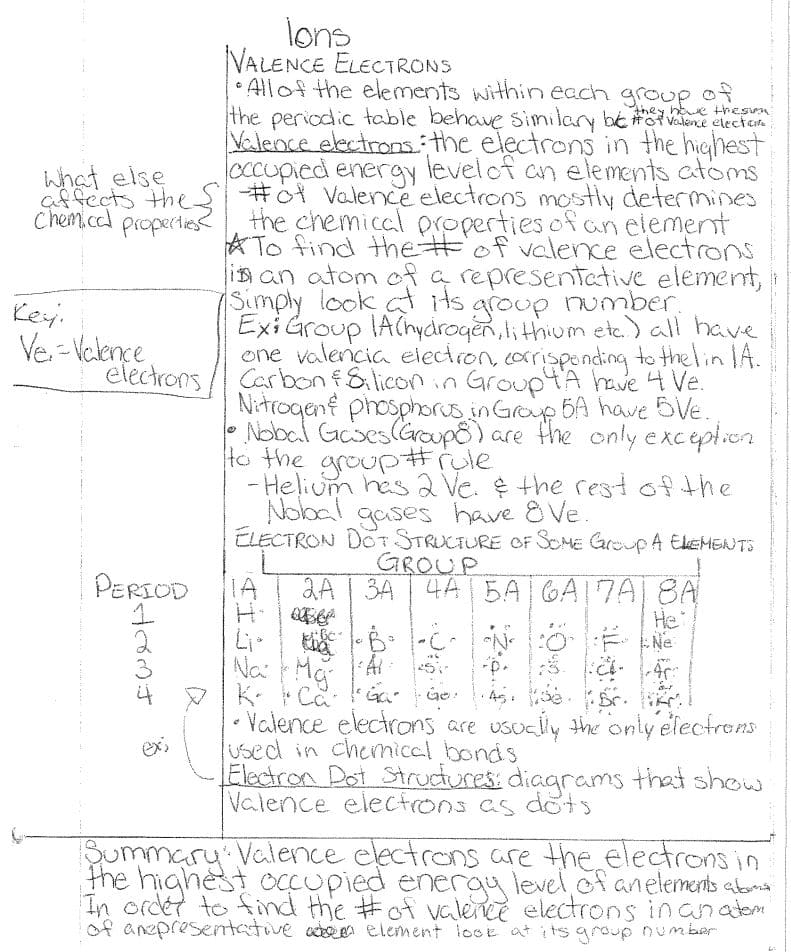 Ions
VALENCE ELECTRONS
• All of the elements within each group of
the periodic table behave similary bc they have the same # of valence electrons
Valence electrons: the electrons in the highest
occupied energy level of an elements atoms
- # of valence electrons mostly determines
the chemical properties of an element
What else
affects the
chemical properties?
☆ To find the # of valence electrons
in an atom of a representative element,
simply look at its group number.
Ex: Group 1A (hydrogen, lithium etc.) all have
one valencia electron, corrisponding to the 1 in 1A.
Carbon & Silicon in Group 4A have 4 Ve.
Nitrogen & phosphorus in Group 5A have 5 Ve.
Key:
Ve. = Valence
electrons
• Nobal Gases (Group 8) are the only exception
to the group # rule
- Helium has 2 Ve. & the rest of the
Nobal gases have 8 Ve.
ELECTRON DOT STRUCTURE OF SOME Group A ELEMENTS
GROUP
PERIOD 1A 2A 3A 4A 5A 6A 7A 8A
1 H He
2 Li Be B C N O F Ne
3 Na Mg Al Si P S Cl Ar
4 K Ca Ga Ge As Se Br Kr
• Valence electrons are usually the only electrons
used in chemical bonds
ex:
Electron Dot Structures: diagrams that show
Valence electrons as dots
Summary: Valence electrons are the electrons in
the highest occupied energy level of an elements atoms
In order to find the # of valence electrons in an atom
of a representative element look at its group number